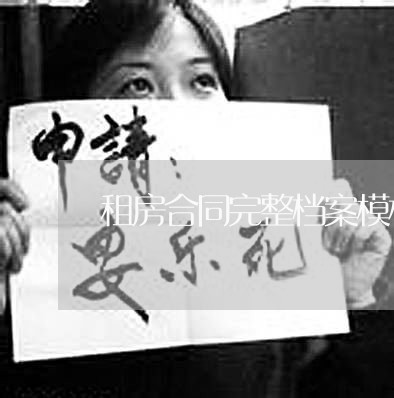 申請：
租房合同完整档案模
要乐死